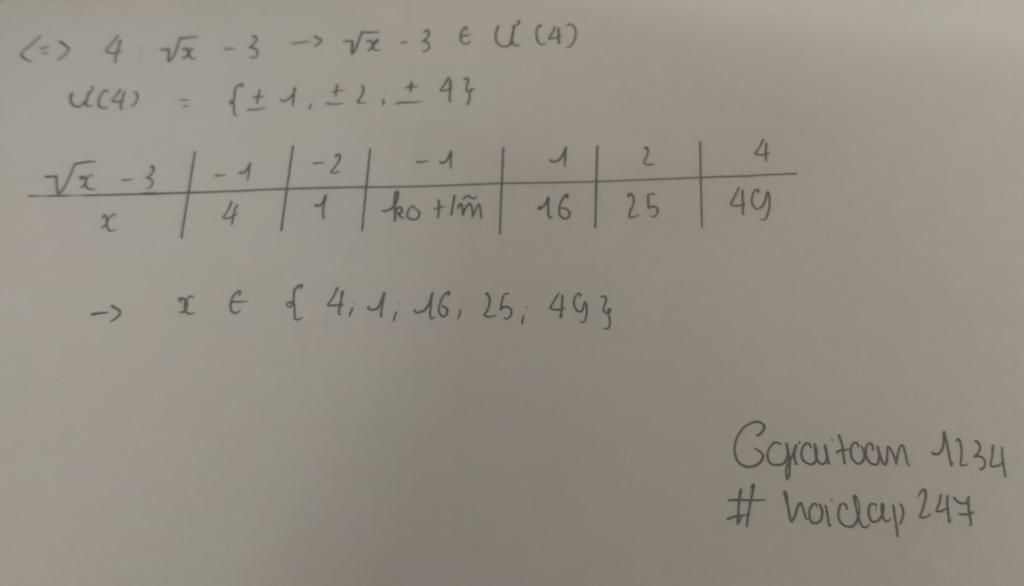 <=> 4 ⋮ √x - 3 -> √x - 3 ∈ Ư(4)
Ư(4) = {±1, ±2, ±4}
√x - 3 | -1 | -2 | -1 | 1 | 2 | 4
x | 4 | 1 | ko t/m~ | 16 | 25 | 49
-> x ∈ {4; 1; 16; 25; 49}
Ggiaitoan 1234
# hoidap 247